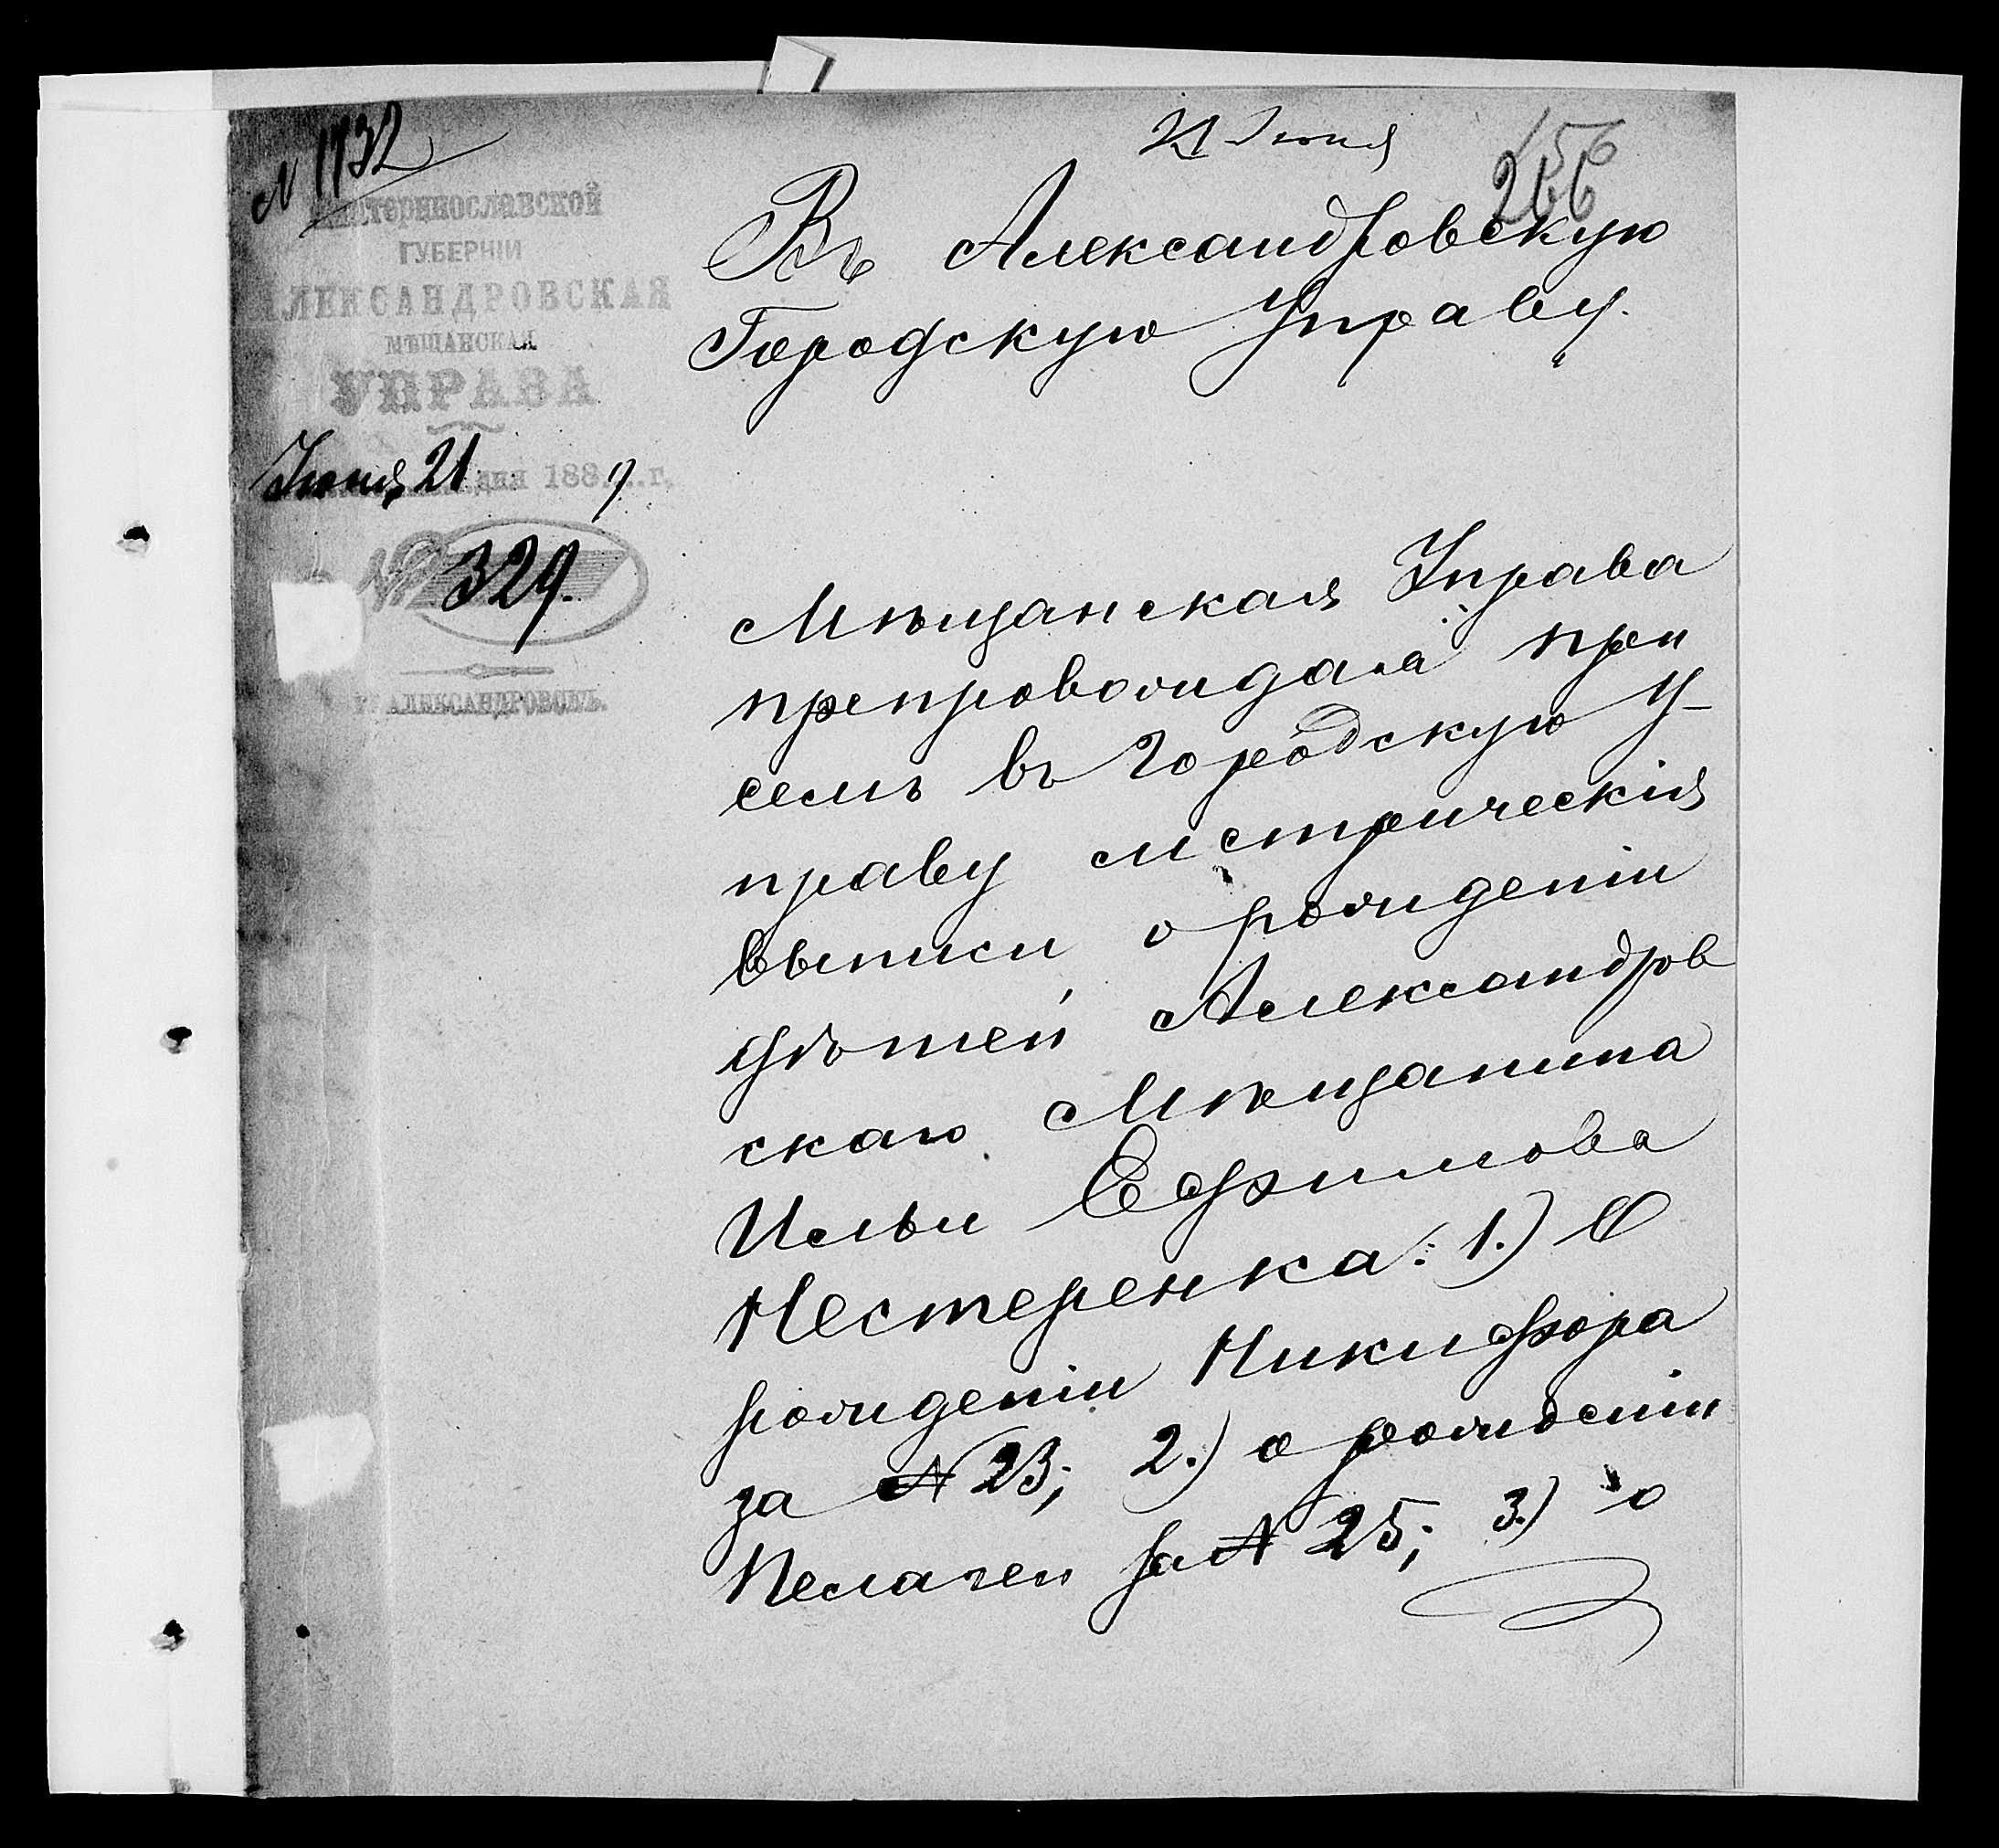 N 1732
21 Іюня
156
266
Екатеринославской
ГУБЕРНІИ
АЛЕКСАНДРОВСКАЯ
МѢЩАНСКАЯ
УПРАВА
Іюня 21 дня 1889 г.
№ 329.
Г. АЛЕКСАНДРОВСКЪ.
Въ Александровскую
Городскую Управу.
Мѣщанская Управа
препровождая при
семъ въ Городскую У-
праву метрическія
выписи о рожденіи
дѣтей Александров
скаго Мѣщанина
Ильи Ефимова
Нестеренка: 1.) О
рожденіи Никифора
за № 23; 2.) о рожденіи
Пелагеи за № 25; 3.) о